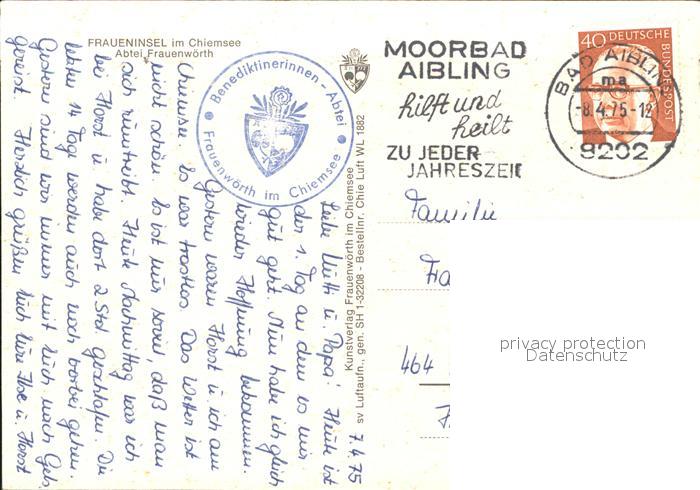 FRAUENINSEL im Chiemsee
Abtei Frauenwörth
Benediktinerinnen-Abtei
Frauenwörth im Chiemsee
MOORBAD
AIBLING
hilft und
heilt
ZU JEDER
JAHRESZEIT
40 DEUTSCHE
BUNDESPOST
BAD AIBLIN
ma
-8.4.75-12
8202
Familie
Fa
464
privacy protection
Datenschutz
Kunstverlag Frauenwörth im Chiemsee
sv Luftaufn., gen. SH 1-32208 - Bestellnr. Chie Luft WL 1882
7.4.75
Liebe Mutti u. Papa! Heute ist
der 1. Tag an dem es mir
gut geht. Nun habe ich gleich
wieder Hoffnung bekommen.
Gestern waren Horst u. ich am
Chiemsee. Es war trostlos. Das Wetter ist
nicht schön. Es ist nur soviel, daß man
sich rumtreibt. Heute Nachmittag war ich
bei Horst u. habe dort 2 Std. geschlafen. Die
letzten 14 Tag werden auch noch vorbei gehen.
Gestern sind wir immer mit Euch nach
gereist. Herzlich grüßen Euch Eure Ilse u. Horst